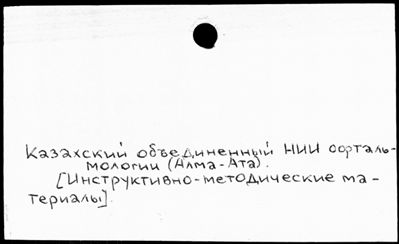 Казахский объединенный НИИ офталь-
мологии (Алма-Ата).
[Инструктивно-методические ма-
териалы].